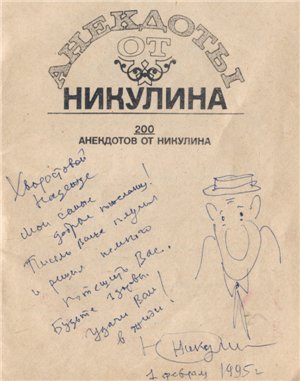 АНЕКДОТЫ
ОТ
НИКУЛИНА
200
АНЕКДОТОВ ОТ НИКУЛИНА
Хворостовой
Надежде
Мои самые
добрые пожелания!
Письмо Ваше получил
и решил немного
утешить Вас..
Будьте здоровы!
Удачи Вам!
в жизни!
Ю Никулин
1 февраля 1995 г